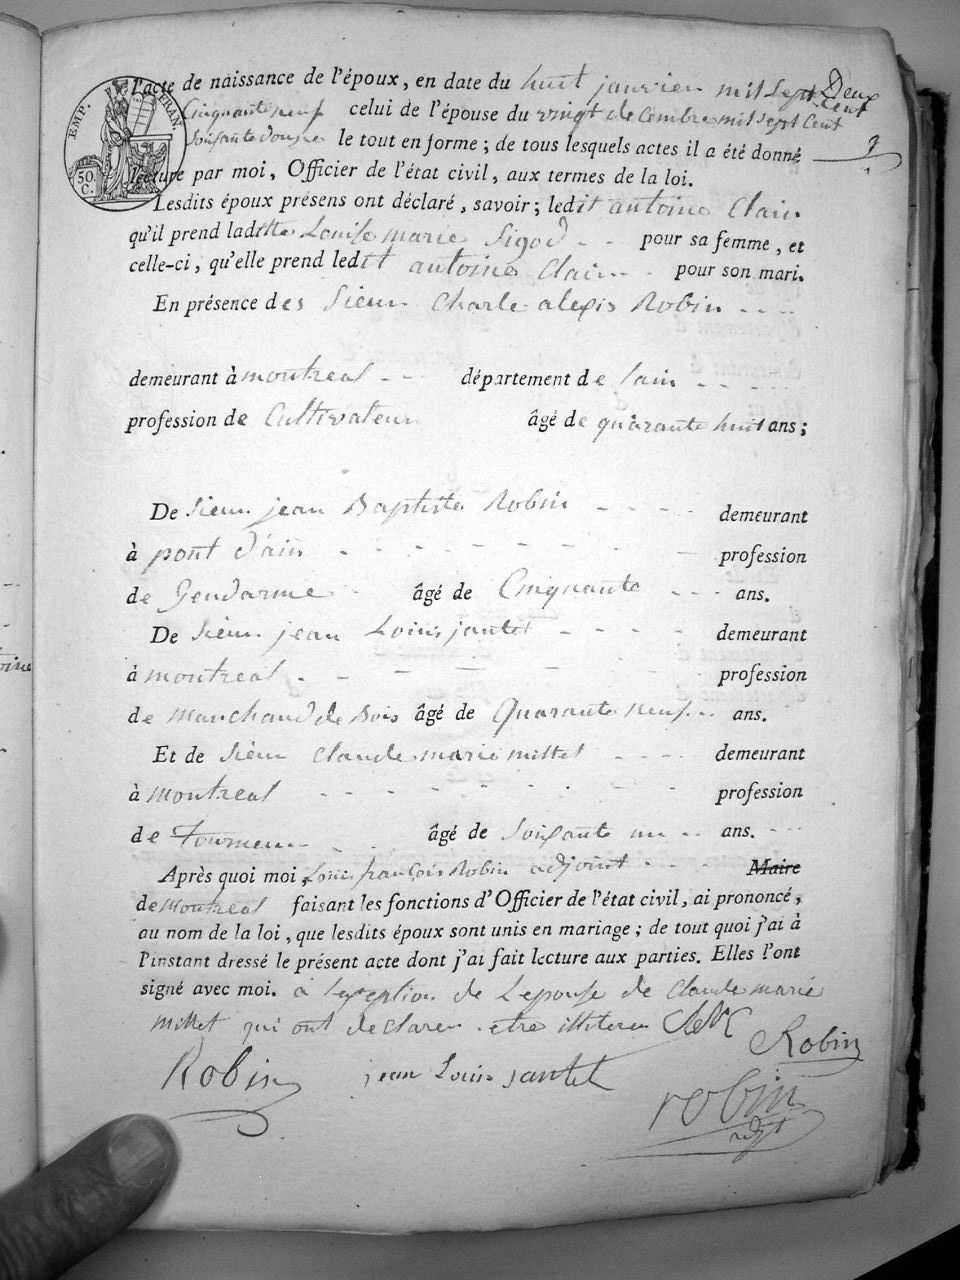 EMP. FRAN.
50. C.
l'acte de naissance de l'époux, en date du huit janvier mil sept
Deux neuf
Cinquante neuf celui de l'épouse du vingt decembre mil sept Cent
Soixante douze le tout en forme ; de tous lesquels actes il a été donné
lecture par moi, Officier de l'état civil, aux termes de la loi.
Lesdits époux présens ont déclaré, savoir ; ledit antoine Clair
qu'il prend laditte Louise marie Sigod pour sa femme, et
celle-ci, qu'elle prend ledit antoine Clair pour son mari.
En présence des Sieur Charle alexis Robin
demeurant à montreal département de lain
profession de Cultivateur âgé de quarante huit ans ;
De Sieur jean Baptiste Robin demeurant
à pont d'ain profession
de Gendarme âgé de Cinquante ans.
De Sieur jean Louis jantet demeurant
à montreal profession
de marchand de Bois âgé de Quarante neuf ans.
Et de Sieur Claude marie millet demeurant
à montreal profession
de Tourneur âgé de Soixante un ans.
Après quoi moi, Louis françois Robin adjoint Maire
de Montreal faisant les fonctions d'Officier de l'état civil, ai prononcé,
au nom de la loi, que lesdits époux sont unis en mariage ; de tout quoi j'ai à
l'instant dressé le présent acte dont j'ai fait lecture aux parties. Elles l'ont
signé avec moi. a lexeption de Lepouse de Claude marie
millet qui ont declarer etre illiteres
Robin
Robin jean Louis jantet
robin
adjt